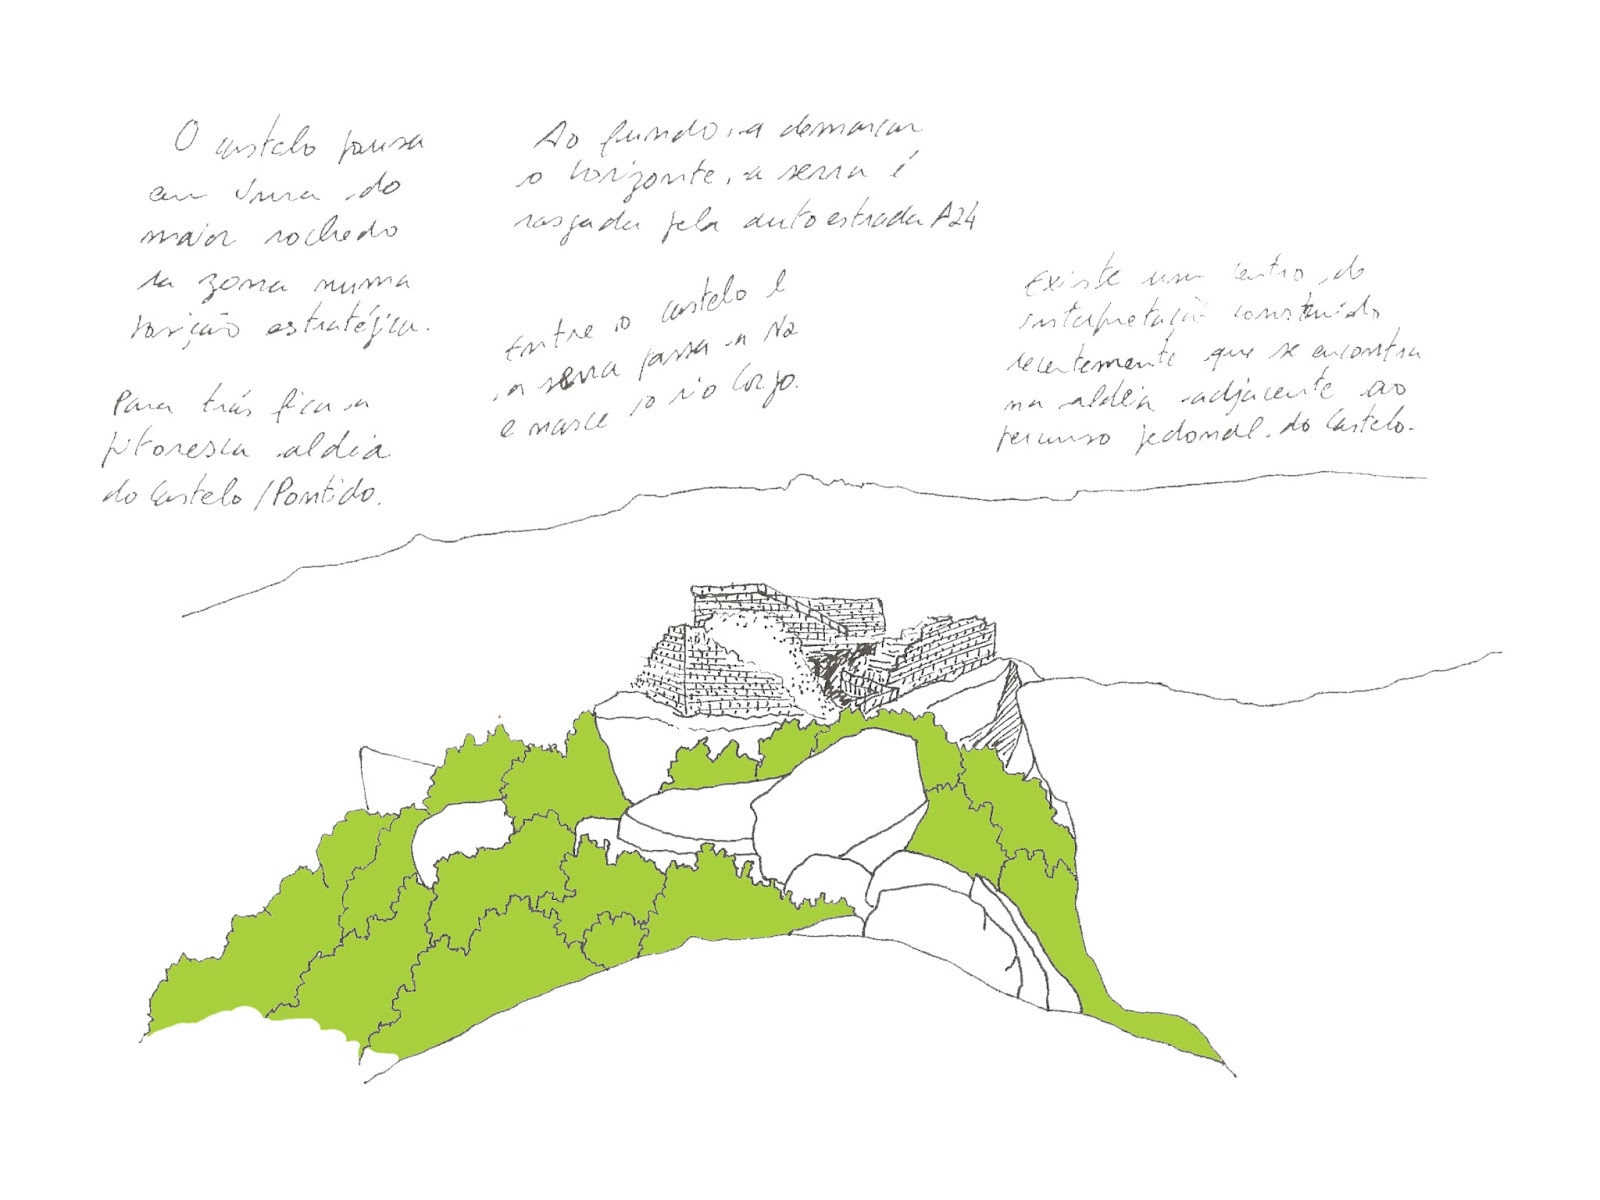 O castelo pousa
em cima do
maior rochedo
da zona numa
posição estratégica.
Para trás fica a
pitoresca aldeia
do Castelo/Pontido.
Ao fundo, a demarcar
o horizonte, a serra é
rasgada pela autoestrada A24
Entre o castelo e
a serra passa a N2
e nasce o rio Corgo.
Existe um centro de
interpretação construído
recentemente que se encontra
na aldeia adjacente ao
percurso pedonal do Castelo.